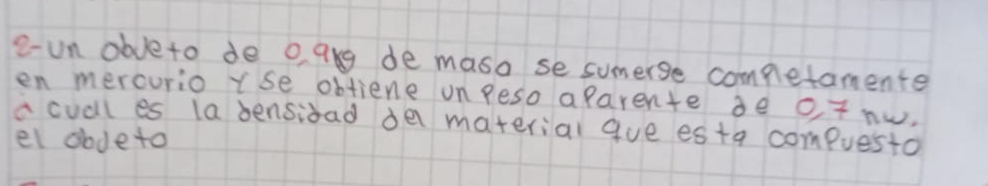 2-un obveto de 0,9kg de masa se sumerge completamente
en mercurio y se obtiene un peso aparente de 0,7 nw.
a cuall es la densidad del material que esta compuesto
el obdeto